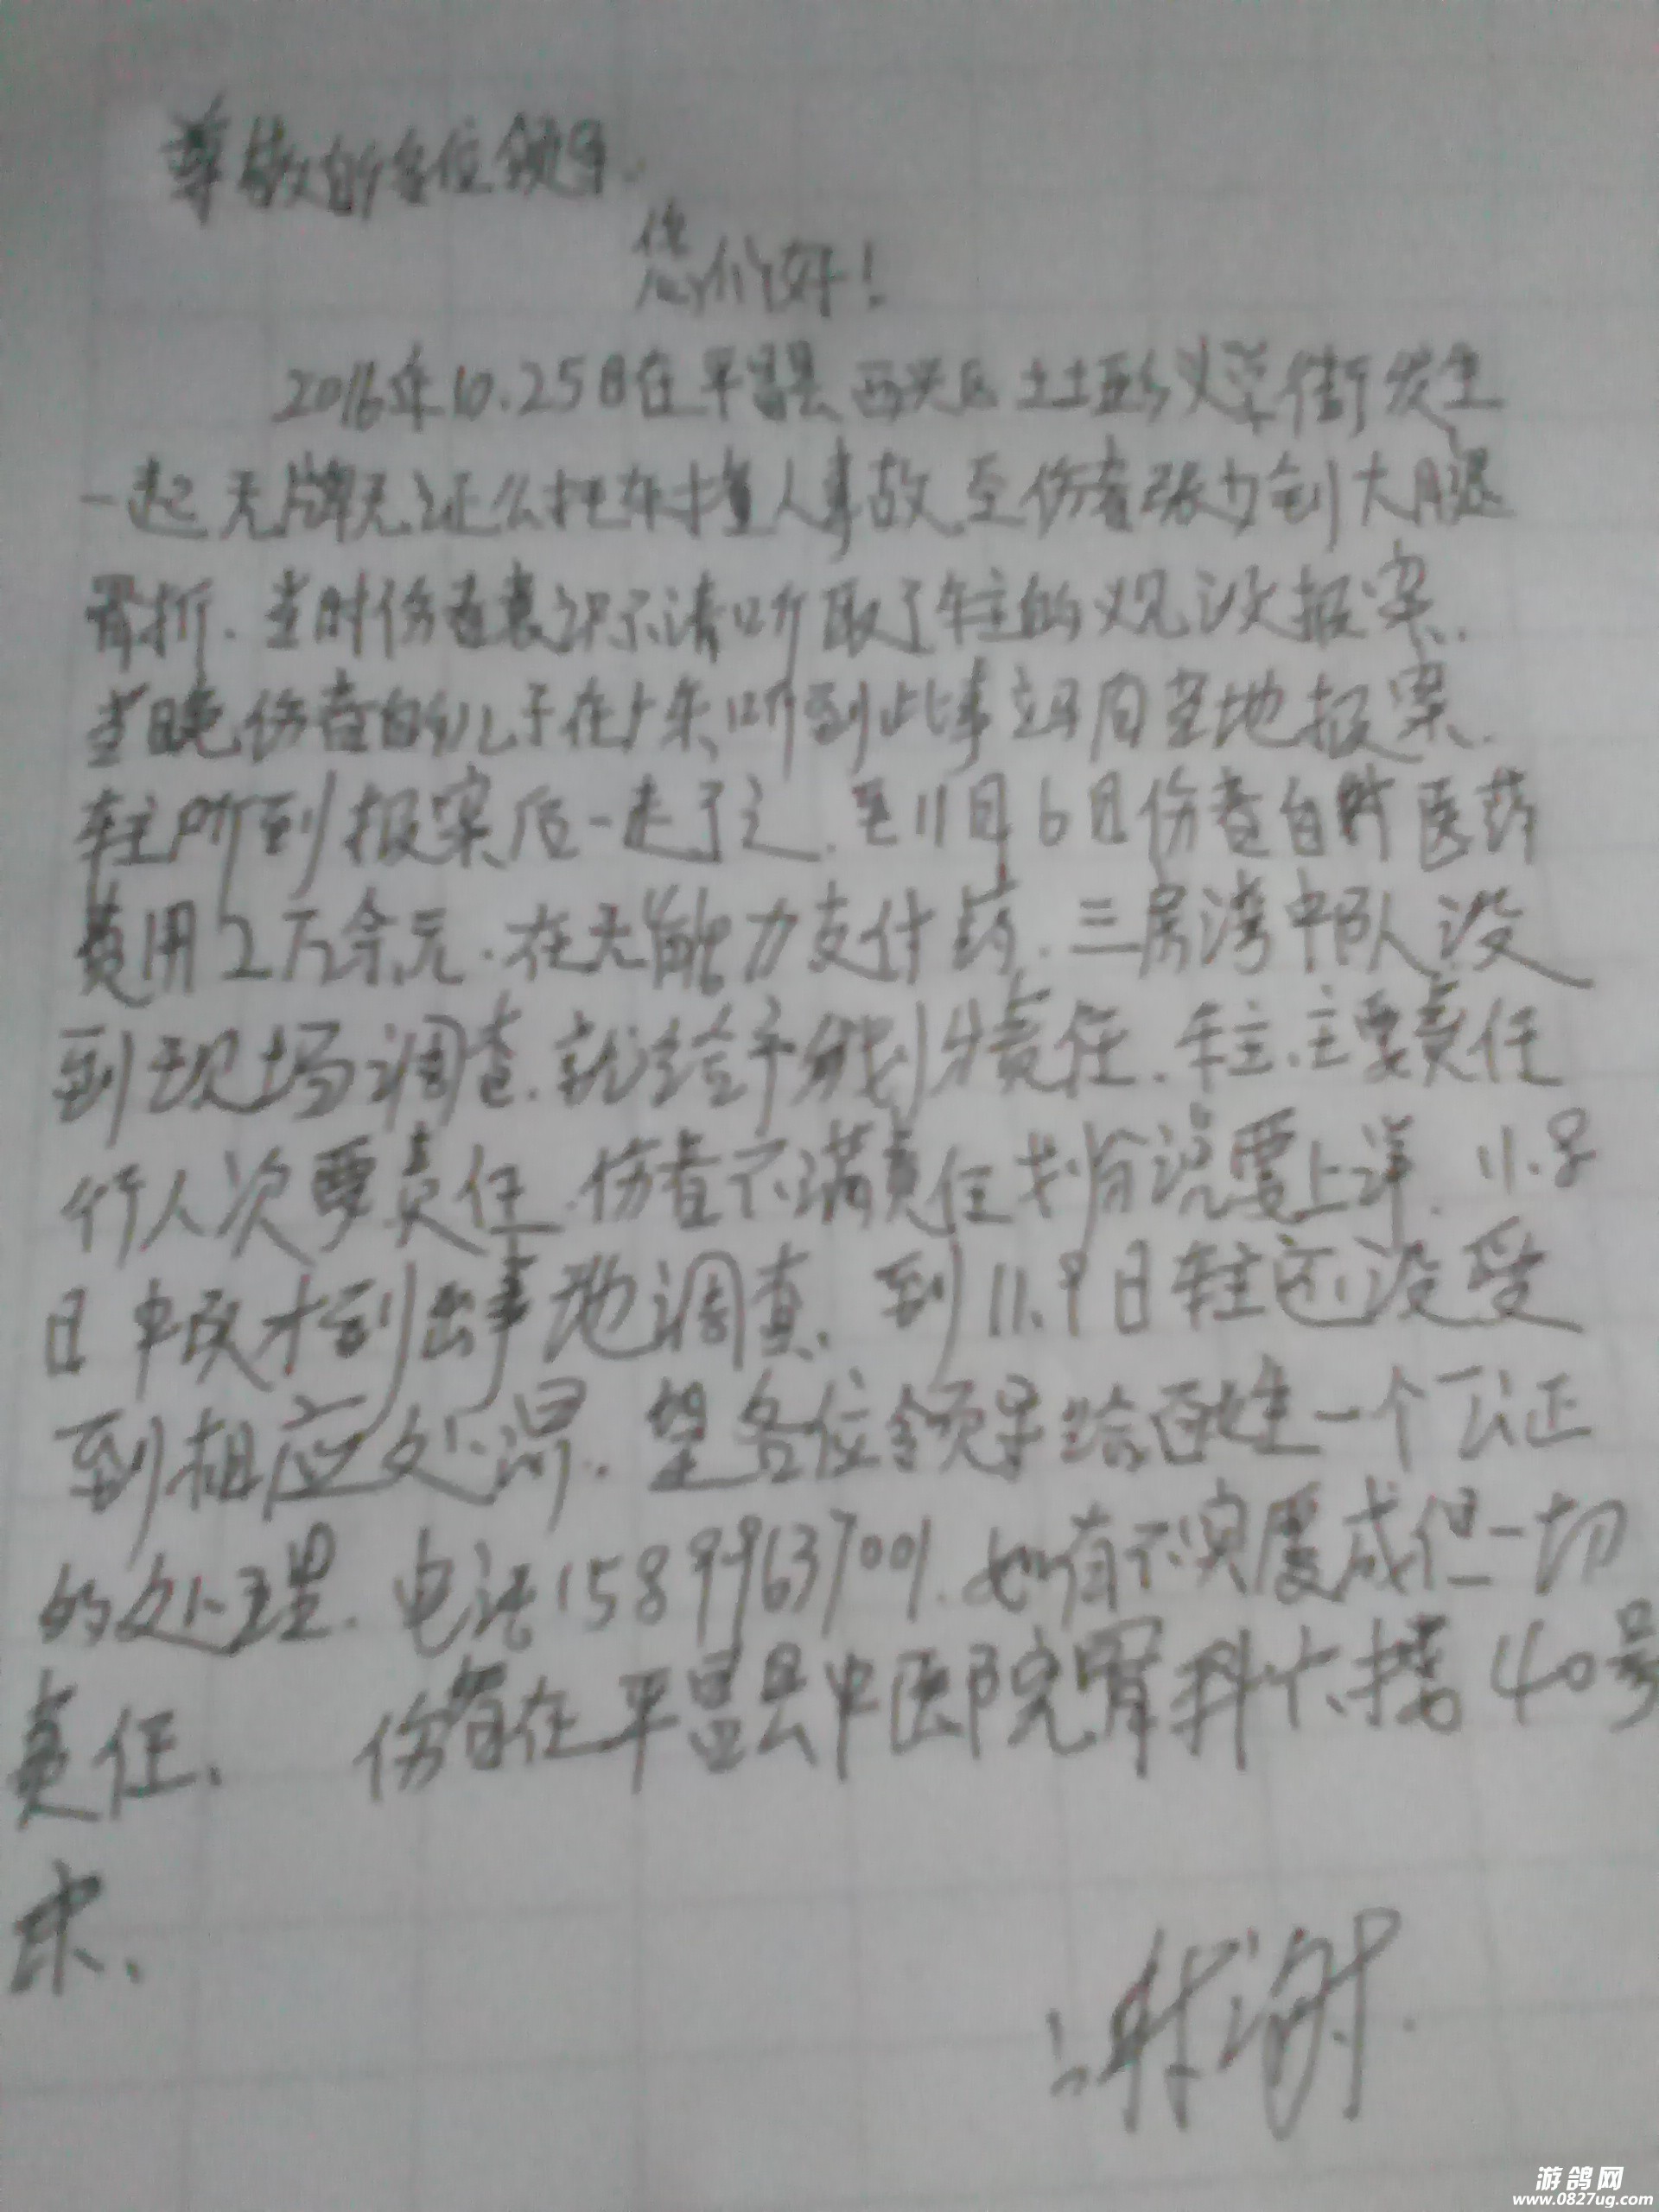 尊敬的各位领导.
您们好!
2016年10.25日在平昌县西兴区土土垭乡义草街发生
一起无牌无证么托车撞人事故至伤者张力剑大腿
骨折.当时伤者意识不清听取了车主的义见没报案.
当晚伤者的儿子在广东听到此事立马向当地报案.
车主听到报案后一走了之.至11月6日伤者自付医药
费用2万余元.在无能力支付药.三房湾中队没
到现场调查.就给予划分责任.车主主要责任
行人次要责任.伤者不满责任划分说要上诉.11.8
日中队才到出事地调查.到11.9日车主还没受
到相应处罚.望各位领导给百姓一个公正
的处理.电话15899637001.如有不实愿承但一切
责任、伤者在平昌县中医院骨科六楼40号
床、
谢谢.
游鸽网
www.0827ug.com